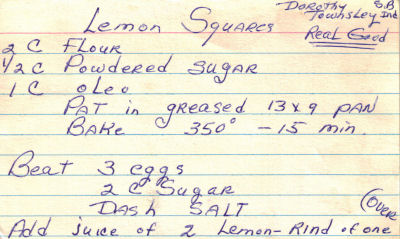 Lemon Squares
Dorothy S.B.
Townsley Ind
Real Good
2 C Flour
1/2 C Powdered Sugar
1 C oleo
Pat in greased 13x9 pan
Bake 350° - 15 min.
Beat 3 eggs
2 C Sugar
Dash Salt
(over
Add juice of 2 Lemon - Rind of one